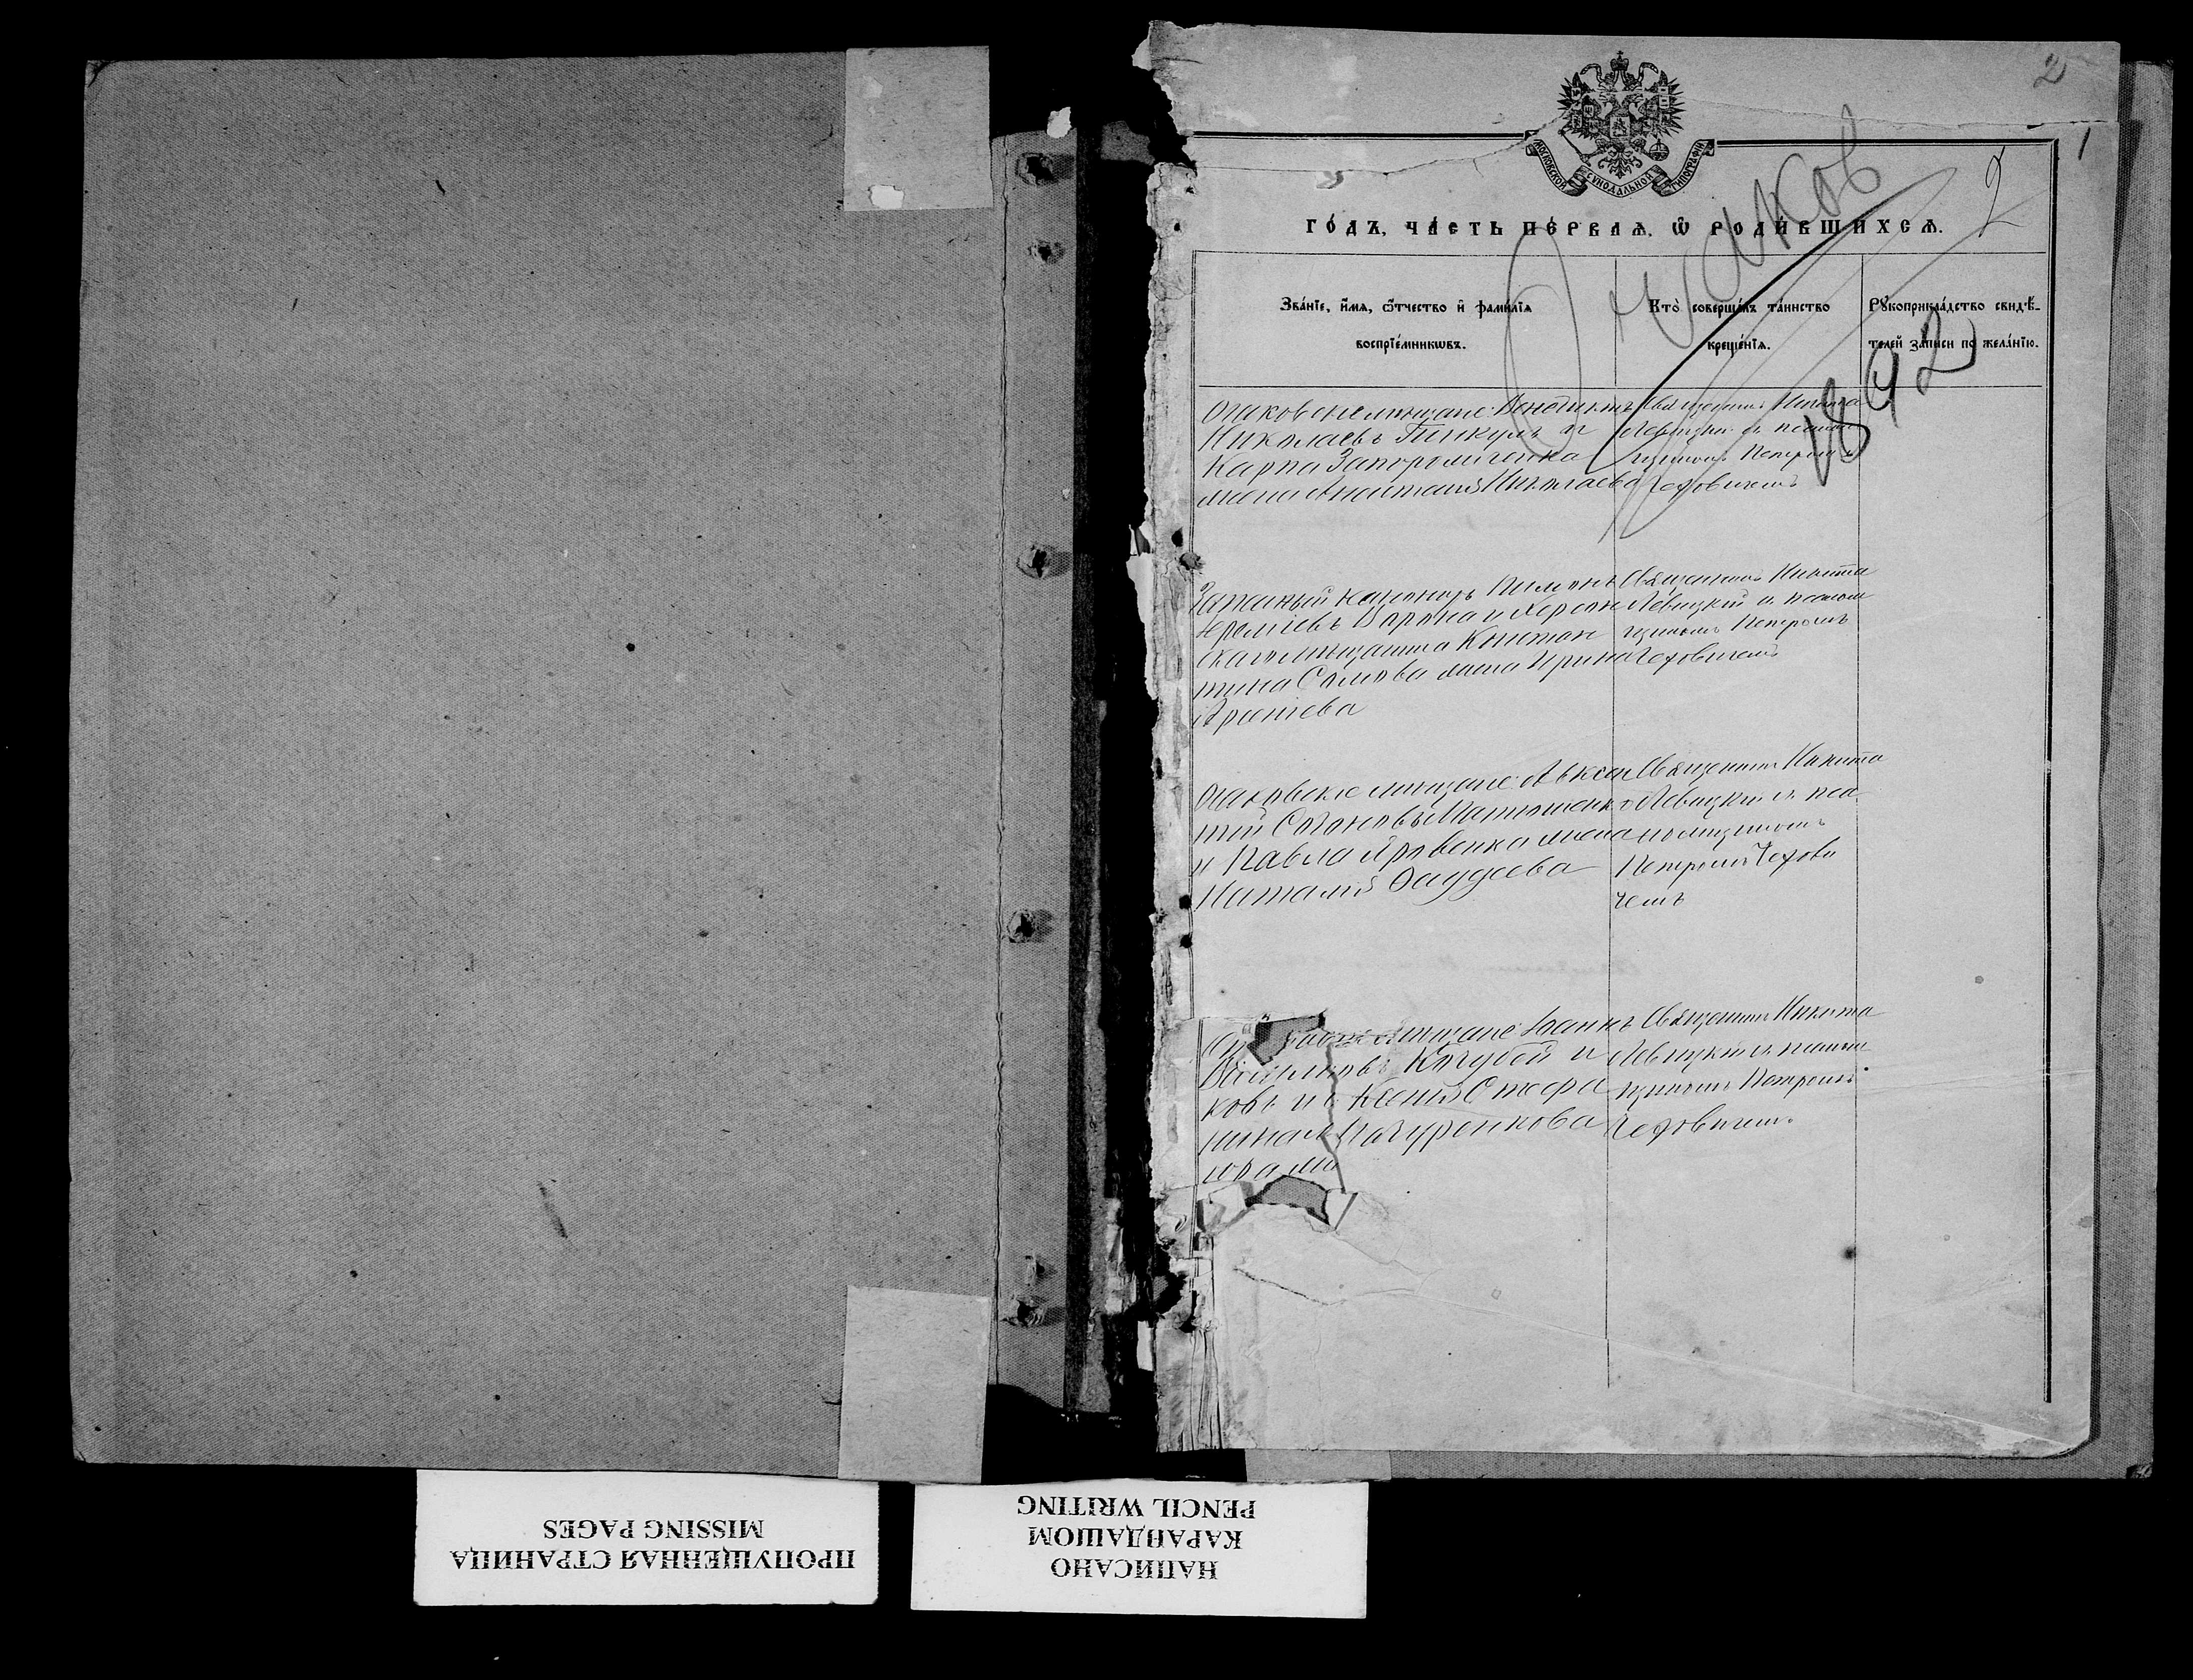 2
1
2
МОСКОВСКОЙ СѴНОДАЛЬНОЙ ТИПОГРАФІИ
Очаков
1892
го́дъ, ча́сть пе́рваѧ, ѡ҆ роди́вшихсѧ.
Зва́нїе, и҆́мѧ, ѻ҆́тчество и҆ фамѝлїѧ
воспрїе́мникѡвъ.
Кто̀ соверша́лъ та́инство
креще́нїѧ.
Рꙋкоприкла́дство свидѣ́-
телей за́писи по жела́нїю.
Очаковские мещане: Венедиктъ
Николаевъ Пинкулъ и
Карпа Запорожченка
жена Анастасія Николаева
Священникъ Никита
Левицкій съ псаломъ
щикомъ Петромъ
Чеховичемъ
Запасный Пимонъ
Еремѣевъ Ворона и Херсон
скаго мещанина Констан
тина Сомова жена Ирина
Арсеніева
Священникъ Никита
Левицкій съ псалом
щикомъ Петромъ
Чеховичемъ
Очаковские мещане: Авксен
тій Матюшенко
и Павла Яровенка жена
Наталія Фаддеева
Священникъ Никита
Левицкій съ пса
ломщикомъ
Петромъ Чехови
чемъ
мещане: Іоаннъ
Кочубей и
Ксенія Стефа
Священникъ Никита
Левицкій съ псалом
щикомъ Петромъ
Чеховичемъ
ПРОПУЩЕННАЯ СТРАНИЦА
MISSING PAGES
НАПИСАНО
КАРАНДАШОМ
PENCIL WRITING